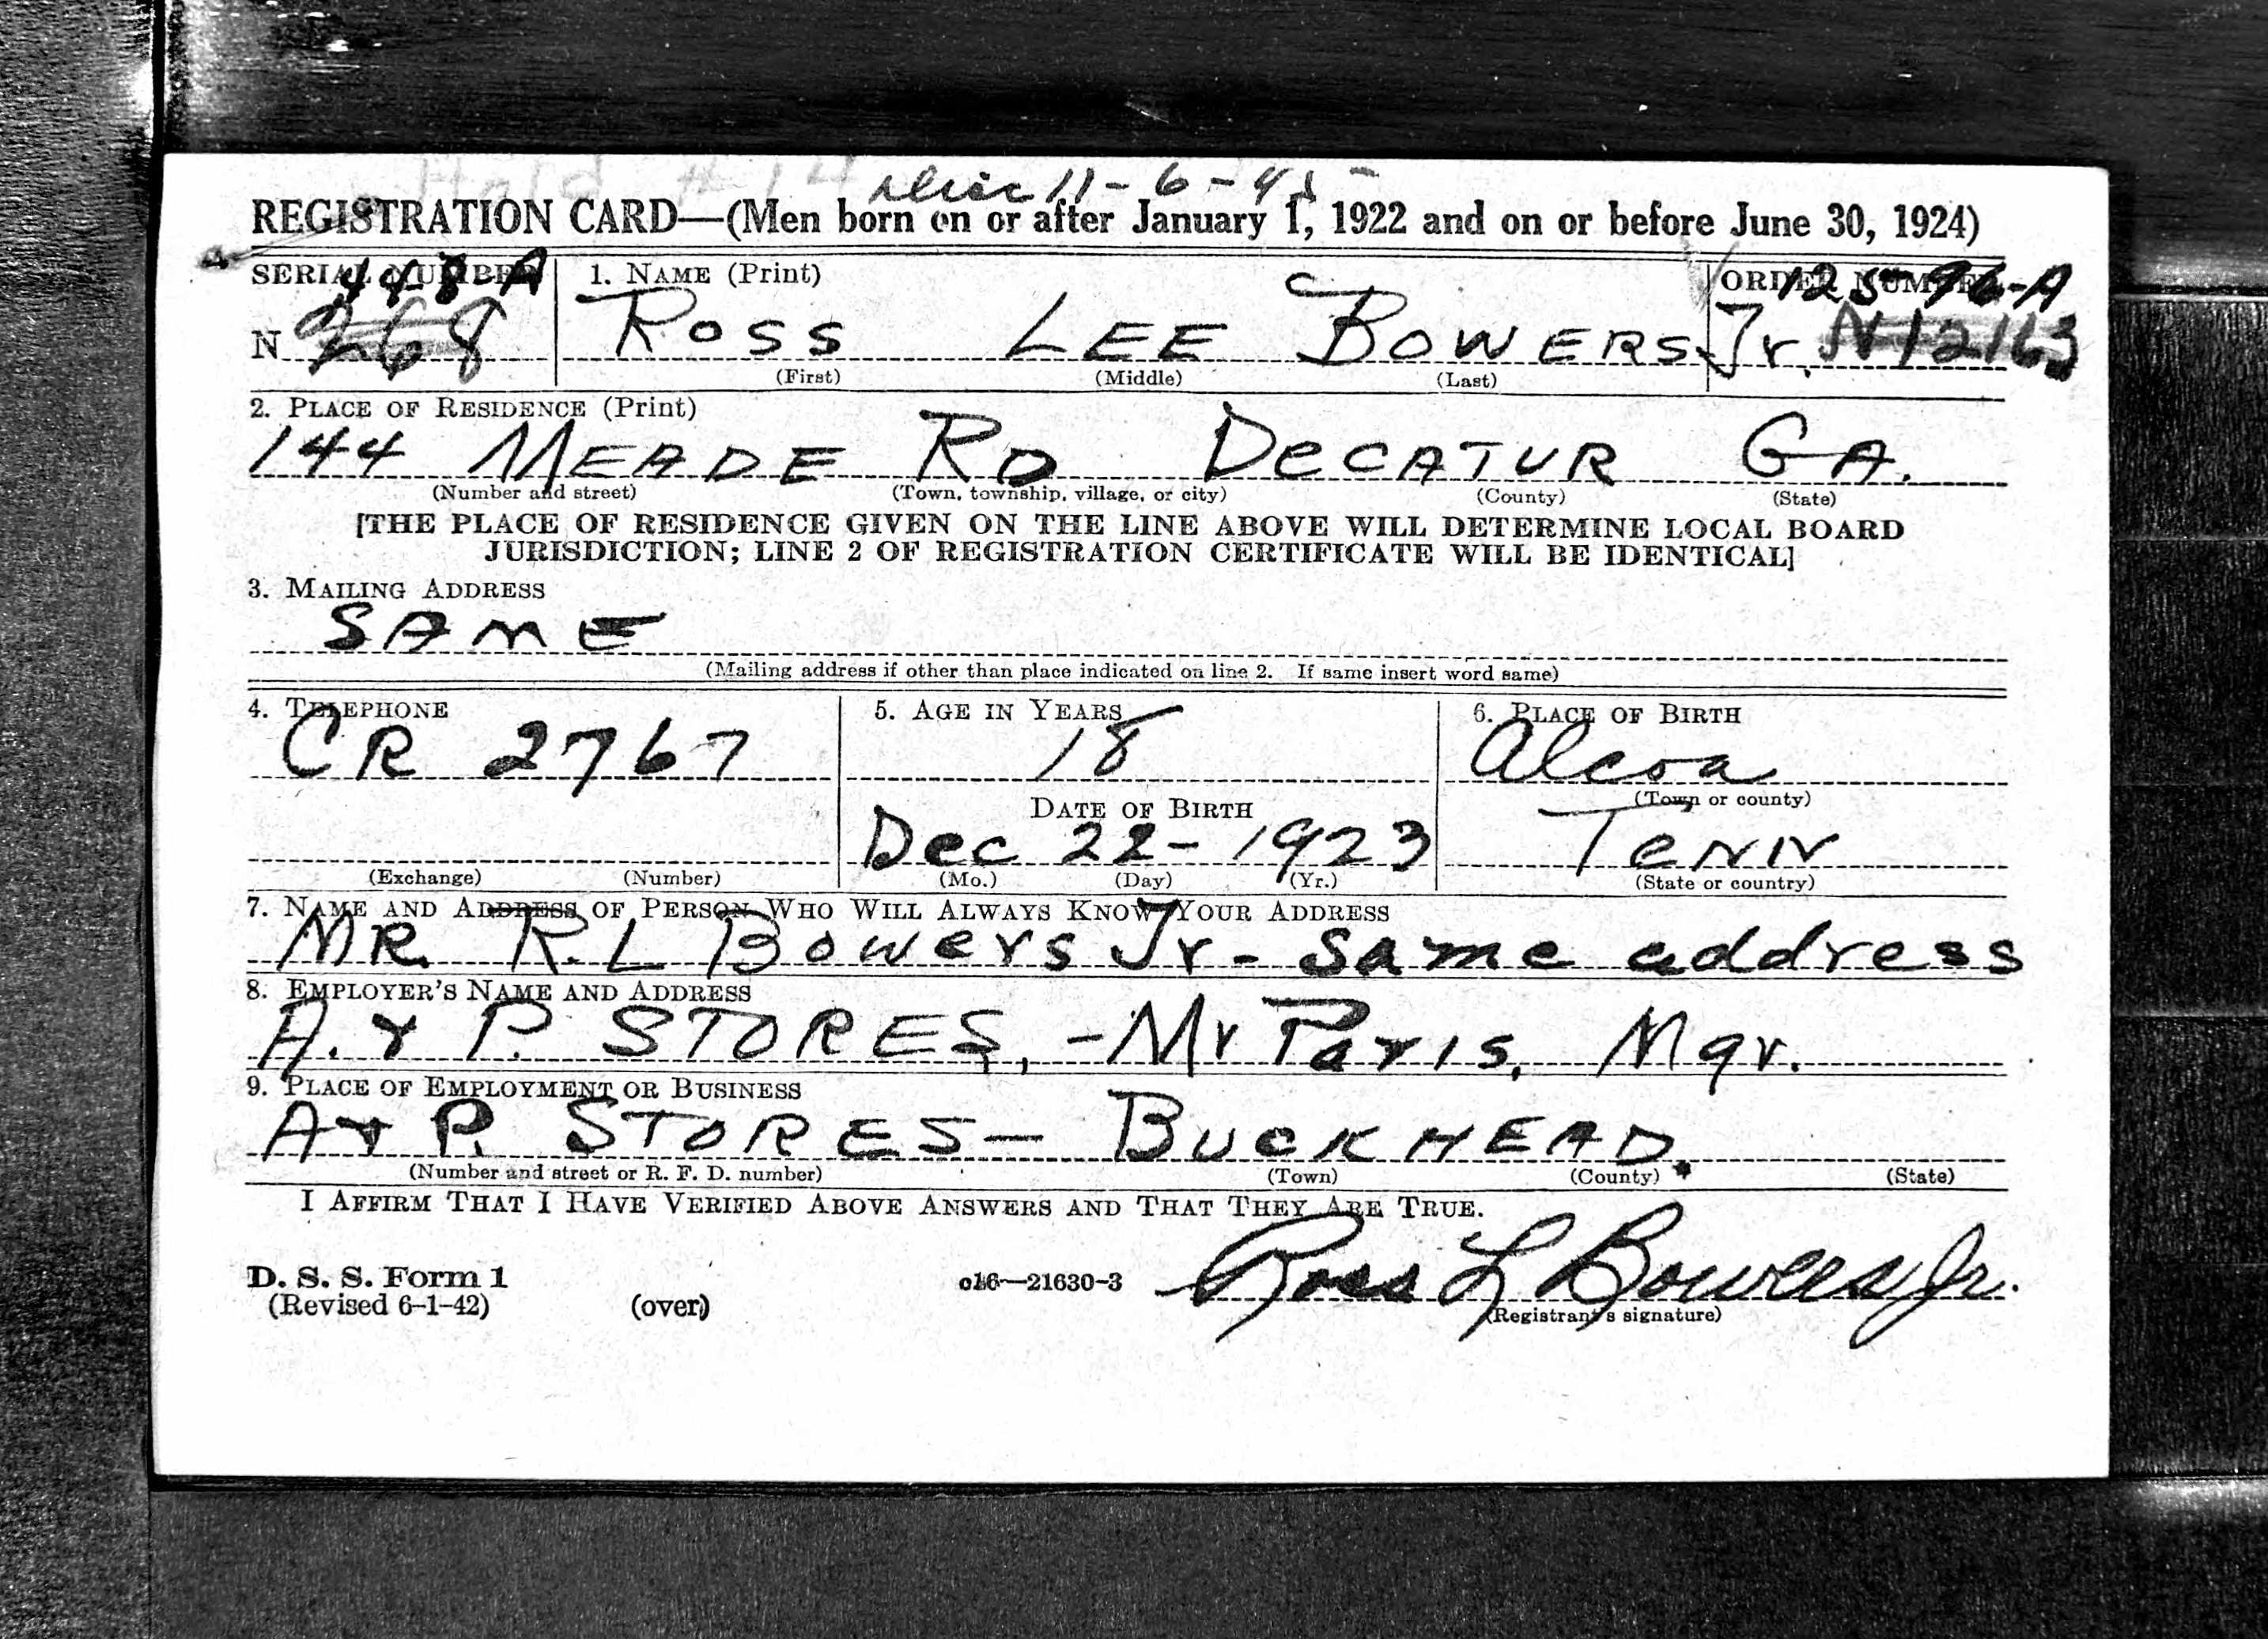 Hold #14
disc 11-6-45
REGISTRATION CARD—(Men born on or after January 1, 1922 and on or before June 30, 1924)
SERIAL NUMBER 1. NAME (Print) ORDER NUMBER
448-A 12596-A
N 268 ROSS LEE BOWERS Jr. N12163
(First) (Middle) (Last)
2. PLACE OF RESIDENCE (Print)
144 MEADE RD DeCATUR GA.
(Number and street) (Town, township, village, or city) (County) (State)
[THE PLACE OF RESIDENCE GIVEN ON THE LINE ABOVE WILL DETERMINE LOCAL BOARD
JURISDICTION; LINE 2 OF REGISTRATION CERTIFICATE WILL BE IDENTICAL]
3. MAILING ADDRESS
SAME
(Mailing address if other than place indicated on line 2. If same insert word same)
4. TELEPHONE 5. AGE IN YEARS 6. PLACE OF BIRTH
CR 2767 18 Alcoa
DATE OF BIRTH (Town or county)
Dec 22-1923 TeNN
(Exchange) (Number) (Mo.) (Day) (Yr.) (State or country)
7. NAME AND ADDRESS OF PERSON WHO WILL ALWAYS KNOW YOUR ADDRESS
MR. R. L Bowers Jr- same address
8. EMPLOYER'S NAME AND ADDRESS
A. & P. STORES, -Mr Paris, Mgr.
9. PLACE OF EMPLOYMENT OR BUSINESS
A & P. STORES— BUCKHEAD.
(Number and street or R. F. D. number) (Town) (County) (State)
I AFFIRM THAT I HAVE VERIFIED ABOVE ANSWERS AND THAT THEY ARE TRUE.
D. S. S. Form 1 c16—21630-3 Ross L Bowers Jr.
(Revised 6-1-42) (over) (Registrant's signature)